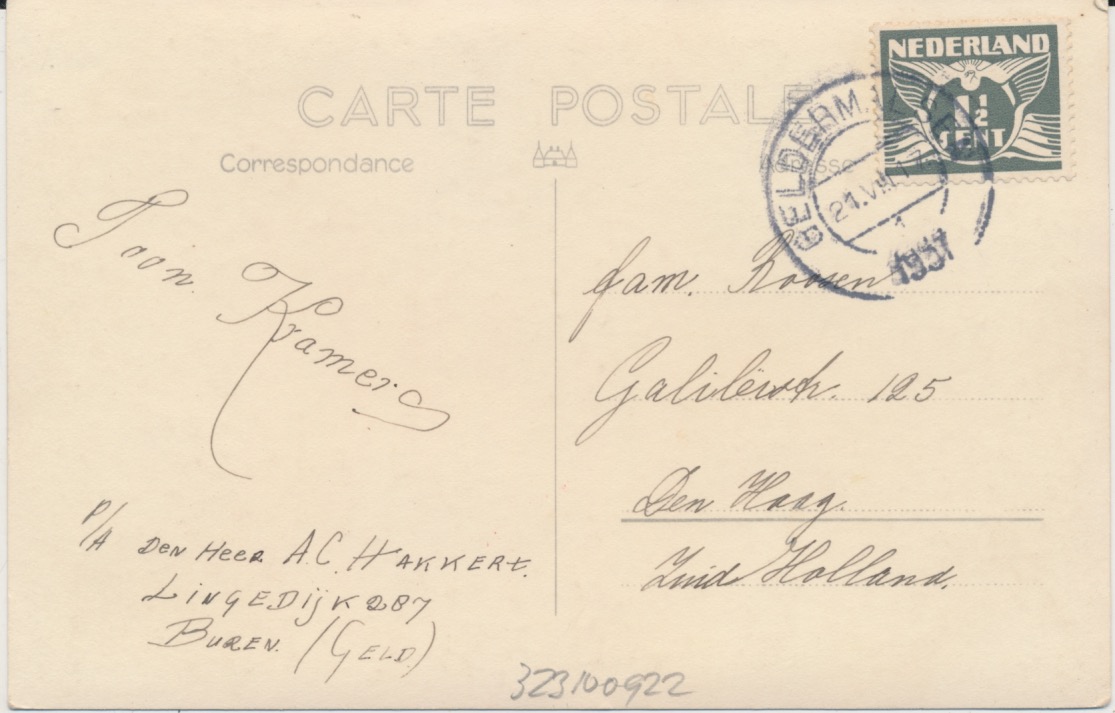 CARTE POSTALE
Correspondance
NEDERLAND
1½
CENT
GELDERMALSEN
21.VIII 17
1
1937
Toon Kramers
P/A Den Heer A.C. Hakkert.
Lingedijk 287
Buren. (Geld)
fam. Roosen
Galileïstr. 125
Den Haag.
Zuid Holland.
323100922